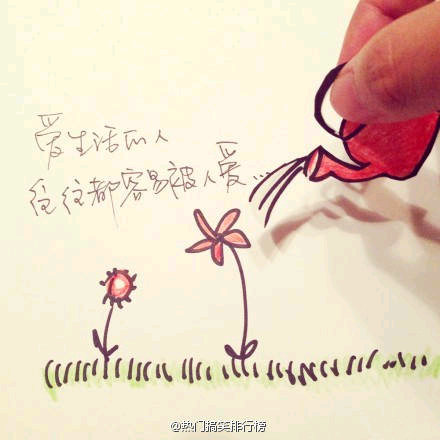 爱生活的人
往往都容易被人爱...
@热门搞笑排行榜